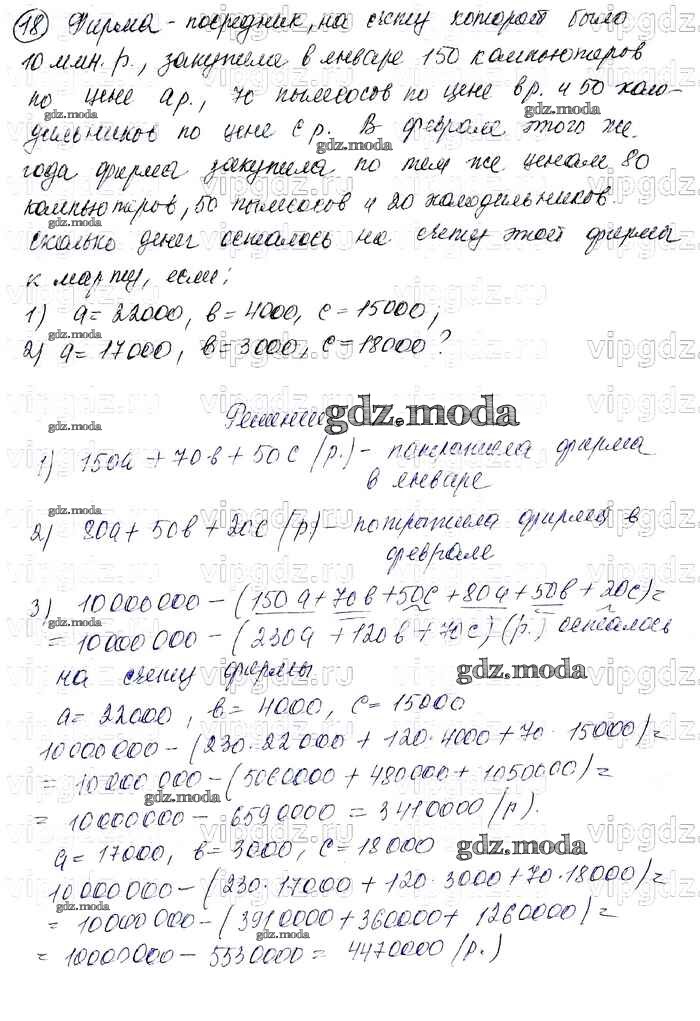 18) Фирма-посредник, на счету которой было
10 млн. р., закупила в январе 150 компьютеров
по цене a р., 70 пылесосов по цене b р. и 50 холо-
дильников по цене c р. В феврале этого же
года фирма закупила по тем же ценам 80
компьютеров, 50 пылесосов и 20 холодильников.
Сколько денег осталось на счету этой фирмы
к марту, если:
1) a = 22000, b = 4000, c = 15000;
2) a = 17000, b = 3000, c = 18000?
Решение
1) 150a + 70b + 50c (р.) - потратила фирма
в январе
2) 80a + 50b + 20c (р) - потратила фирма в
феврале
3) 10 000 000 - (150a + 70b + 50c + 80a + 50b + 20c) =
= 10 000 000 - (230a + 120b + 70c) (р.) осталось
на счету фирмы
a = 22000, b = 4000, c = 15000
10 000 000 - (230·22 000 + 120·4000 + 70·15000) =
= 10 000 000 - (5060000 + 480000 + 1050000) =
= 10000000 - 6590000 = 3410000 (р).
a = 17000, b = 3000, c = 18 000
10 000 000 - (230·17000 + 120·3000 + 70·18000) =
= 10 000 000 - (3910000 + 360000 + 1260000) =
= 10000000 - 5530000 = 4470000 (р.)
gdz.moda
vipgdz.ru